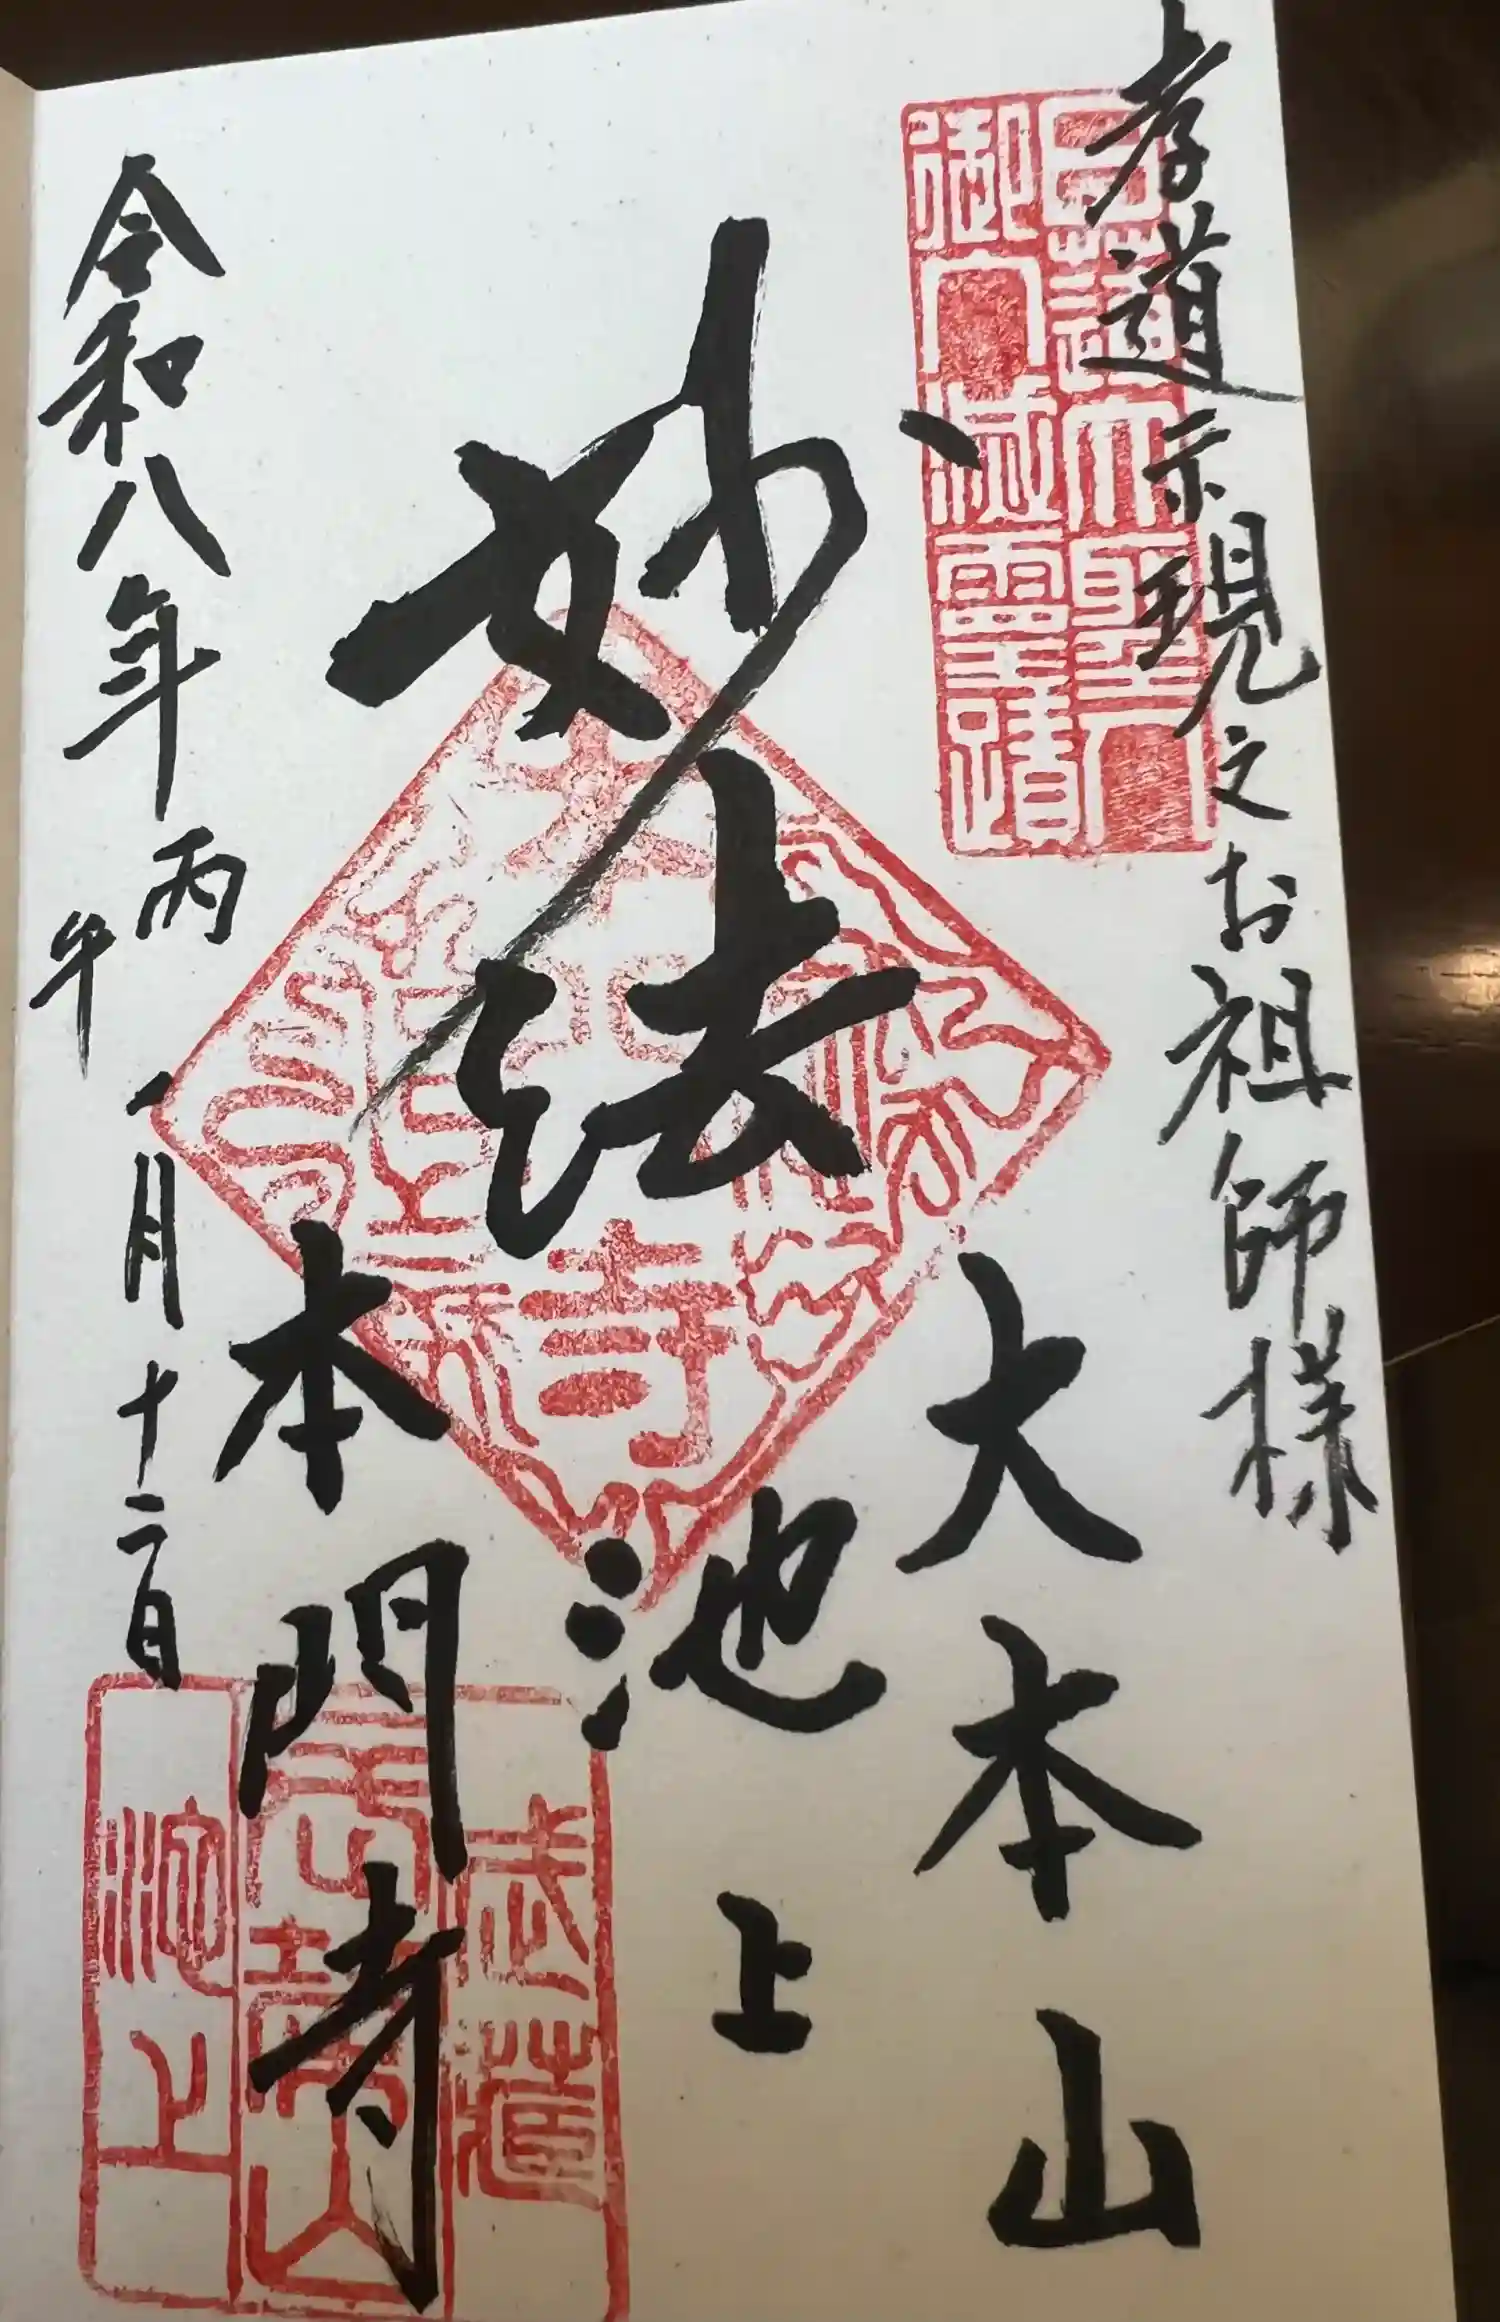 孝道示現之お祖師様
日蓮大聖人
御入滅霊蹟
妙法
大本山
池上
本門寺
武蔵
長栄山
池上
令和八年丙午
一月十二日